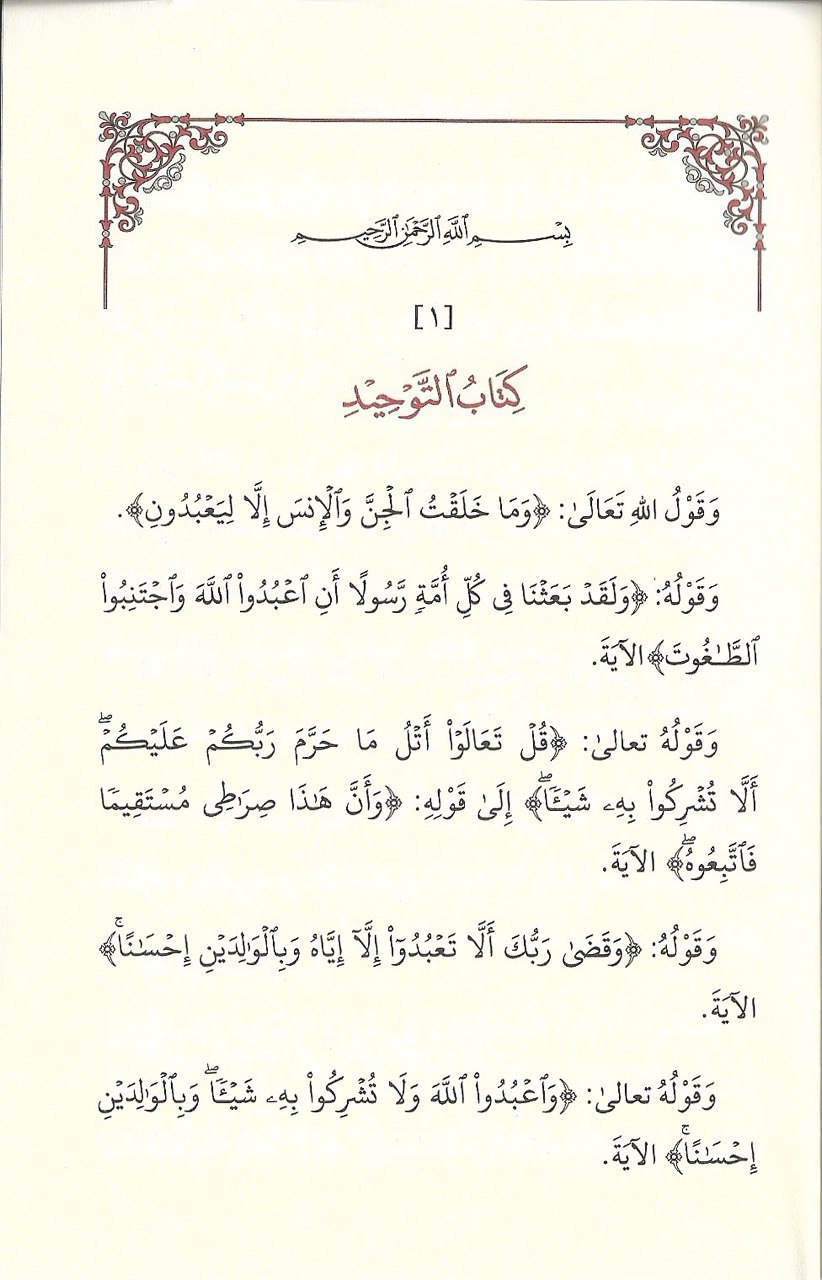 بِسْمِ ٱللَّهِ ٱلرَّحْمَٰنِ ٱلرَّحِيمِ
[١]
كِتَابُ ٱلتَّوْحِيدِ
وَقَوْلُ اللهِ تَعَالَىٰ: ﴿وَمَا خَلَقْتُ ٱلْجِنَّ وَٱلْإِنسَ إِلَّا لِيَعْبُدُونِ﴾.
وَقَوْلُهُ: ﴿وَلَقَدْ بَعَثْنَا فِى كُلِّ أُمَّةٍ رَّسُولًا أَنِ ٱعْبُدُوا۟ ٱللَّهَ وَٱجْتَنِبُوا۟
ٱلطَّـٰغُوتَ﴾ الآيَةَ.
وَقَوْلُهُ تعالىٰ: ﴿قُلْ تَعَالَوْا۟ أَتْلُ مَا حَرَّمَ رَبُّكُمْ عَلَيْكُمْ ۖ
أَلَّا تُشْرِكُوا۟ بِهِۦ شَيْـًٔا ۖ﴾ إِلَىٰ قَوْلِهِ: ﴿وَأَنَّ هَـٰذَا صِرَٰطِى مُسْتَقِيمًا
فَٱتَّبِعُوهُ ۖ﴾ الآيَةَ.
وَقَوْلُهُ: ﴿وَقَضَىٰ رَبُّكَ أَلَّا تَعْبُدُوٓا۟ إِلَّآ إِيَّاهُ وَبِٱلْوَٰلِدَيْنِ إِحْسَـٰنًا ۚ﴾
الآيَةَ.
وَقَوْلُهُ تعالىٰ: ﴿وَٱعْبُدُوا۟ ٱللَّهَ وَلَا تُشْرِكُوا۟ بِهِۦ شَيْـًٔا ۖ وَبِٱلْوَٰلِدَيْنِ
إِحْسَـٰنًا ۚ﴾ الآيَةَ.